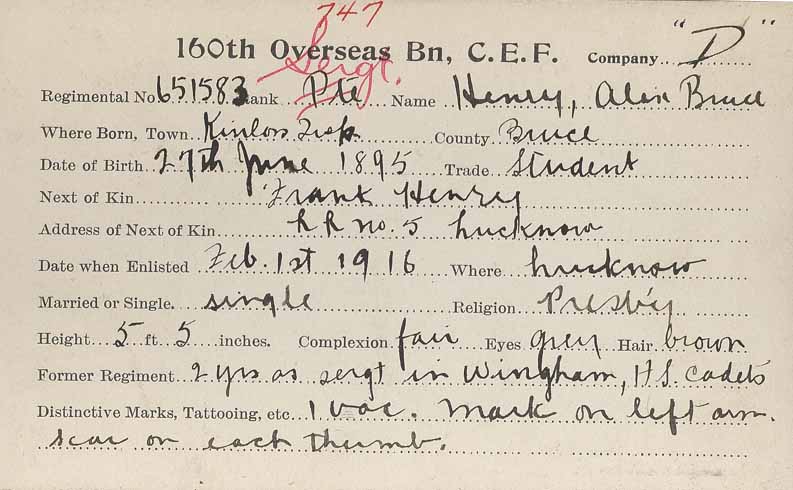 747
160th Overseas Bn, C.E.F. Company "D"
Sergt.
Regimental No. 651583 Rank Pte Name Henry, Alex Bruce
Where Born, Town Kinloss Twsp. County Bruce
Date of Birth 27th June 1895 Trade Student
Next of Kin Frank Henry
Address of Next of Kin R R No. 5 Lucknow
Date when Enlisted Feb. 1st 1916 Where Lucknow
Married or Single. single Religion Presby
Height 5 ft 5 inches. Complexion fair Eyes grey Hair brown
Former Regiment 2 yrs as sergt in Wingham, H.S. Cadets
Distinctive Marks, Tattooing, etc. 1 vac. mark on left arm.
scar on each thumb.